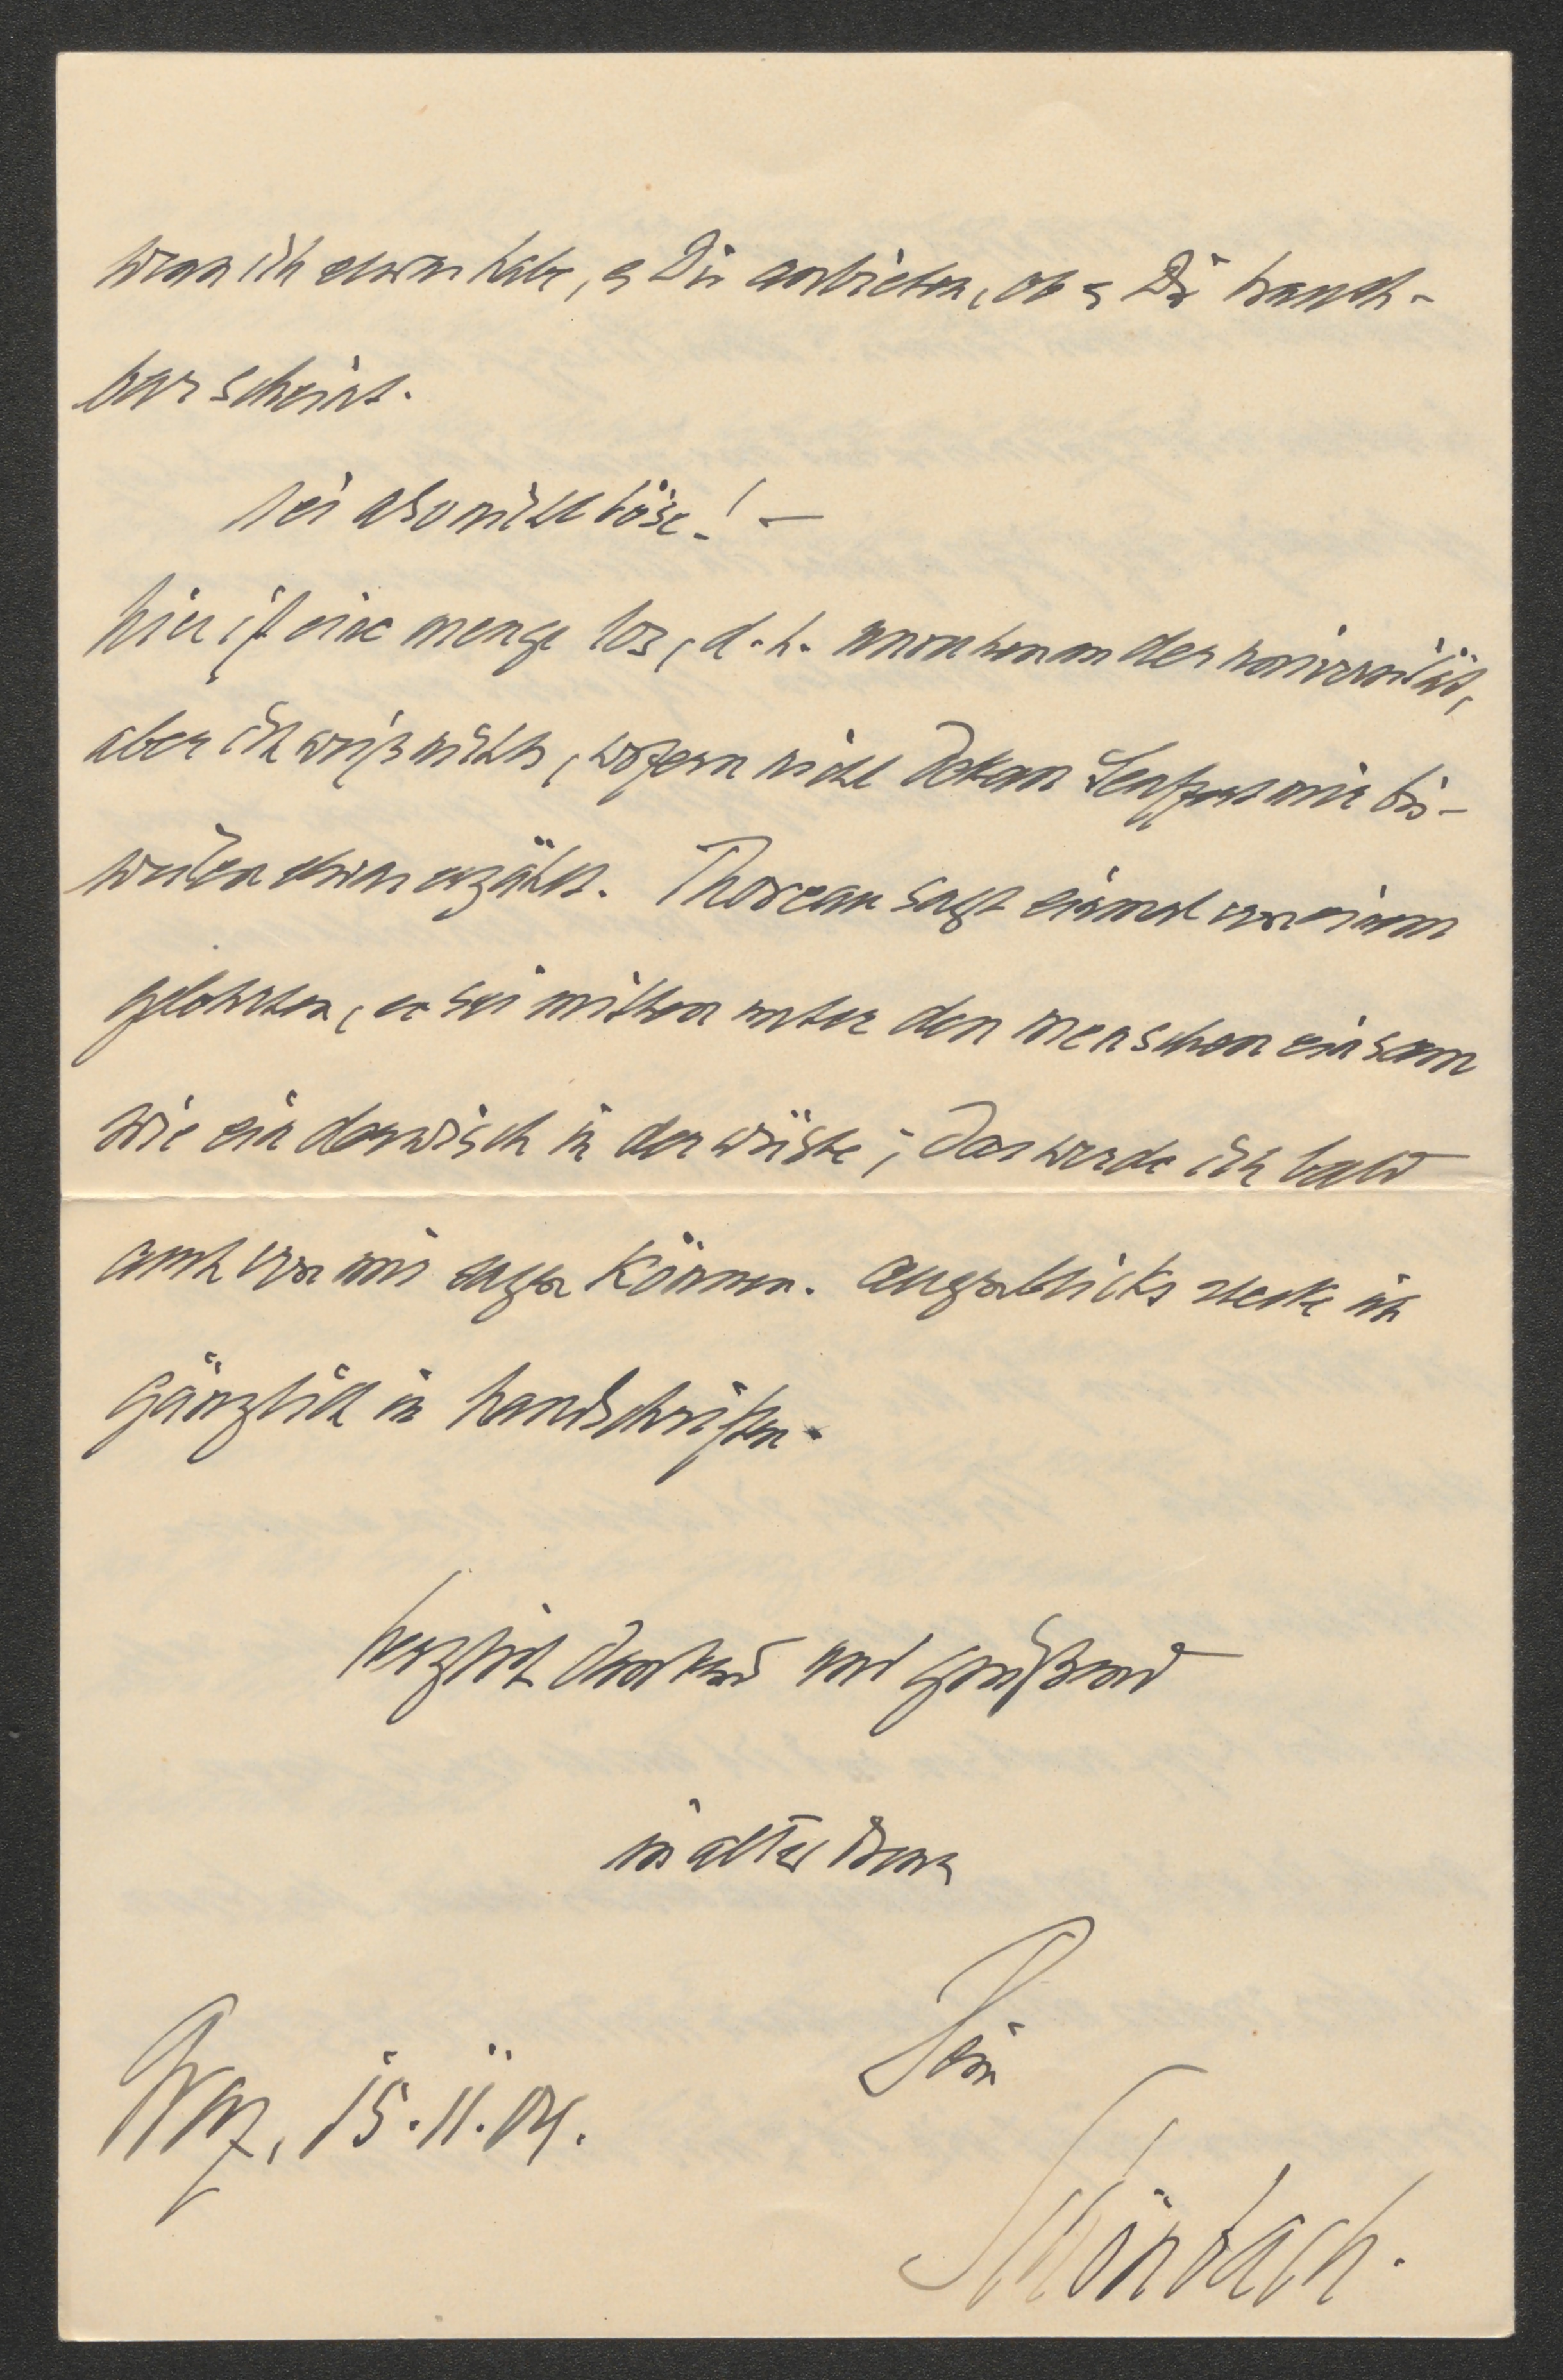 wenn ich etwas habe, es Dir anbieten, ob es Dir brauch-
bar scheint.
sei also nicht böse! –
hier ist eine menge los, d. h. unruhen an der universität,
aber ich weiß nichts, wofern nicht Dekan Seuffert mir bis-
weilen etwas erzählt. Thoreau sagt einmal von einem
gelehrten, er sei mitten unter den menschen einsam
wie ein derwisch in der wüste; das werde ich bald
auch von mir sagen können. augenblicks stecke ich
gänzlich in handschriften.
herzlich dankend und grüßend
in alter treue
Dein
Graz, 15.11.04.
Schönbach.